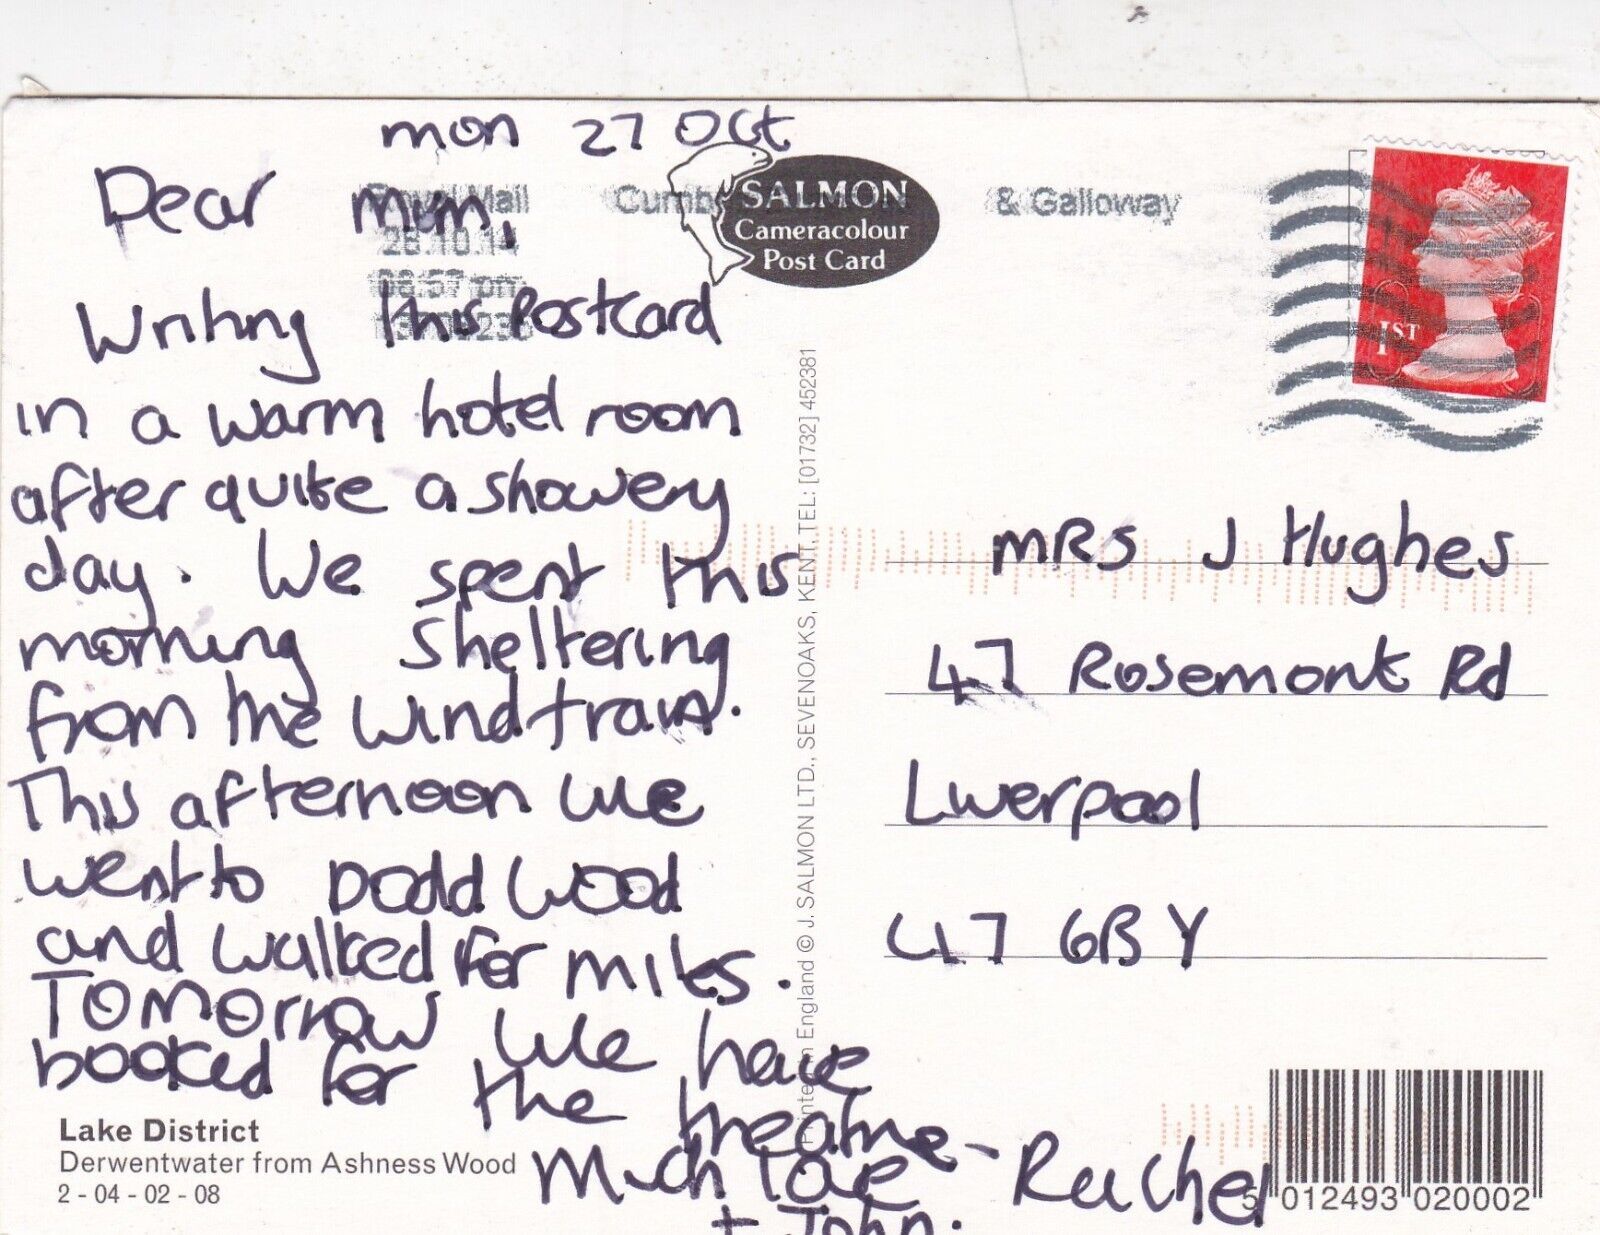 mon 27 Oct
Dear Mum,
Writing this Postcard
in a warm hotel room
after quite a showery
day. We spent this
morning sheltering
from the wind + rain.
This afternoon we
went to Dodd Wood
and walked for miles.
Tomorrow we have
booked for the theatre –
Much love Rachel
+ John.
Lake District
Derwentwater from Ashness Wood
2 - 04 - 02 - 08
Mail
& Galloway
SALMON
Cameracolour
Post Card
England © J. SALMON LTD., SEVENOAKS, KENT. TEL: [01732] 452381
1ST
MRS J Hughes
47 Rosemont Rd
Liverpool
L17 6BY
5 012493 020002